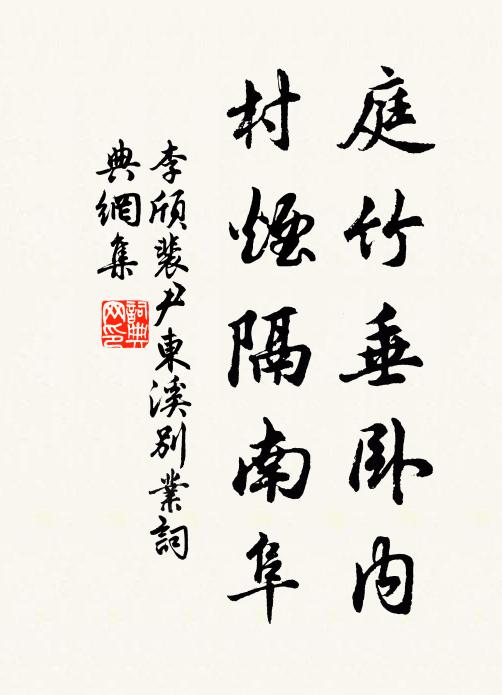 庭竹垂卧内
村煙隔南阜
李頎裴尹東溪別業詞
典網集
詞典
网印